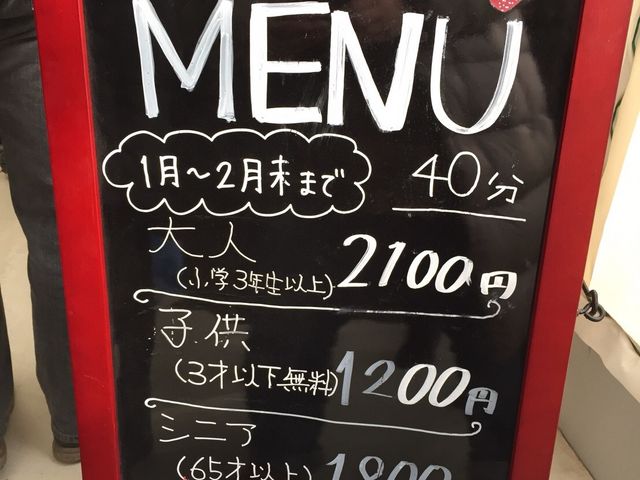 MENU
1月～2月末まで
40分
大人
(小学3年生以上) 2100円
子供
(3才以下無料) 1200円
シニア
(65才以上) 1800